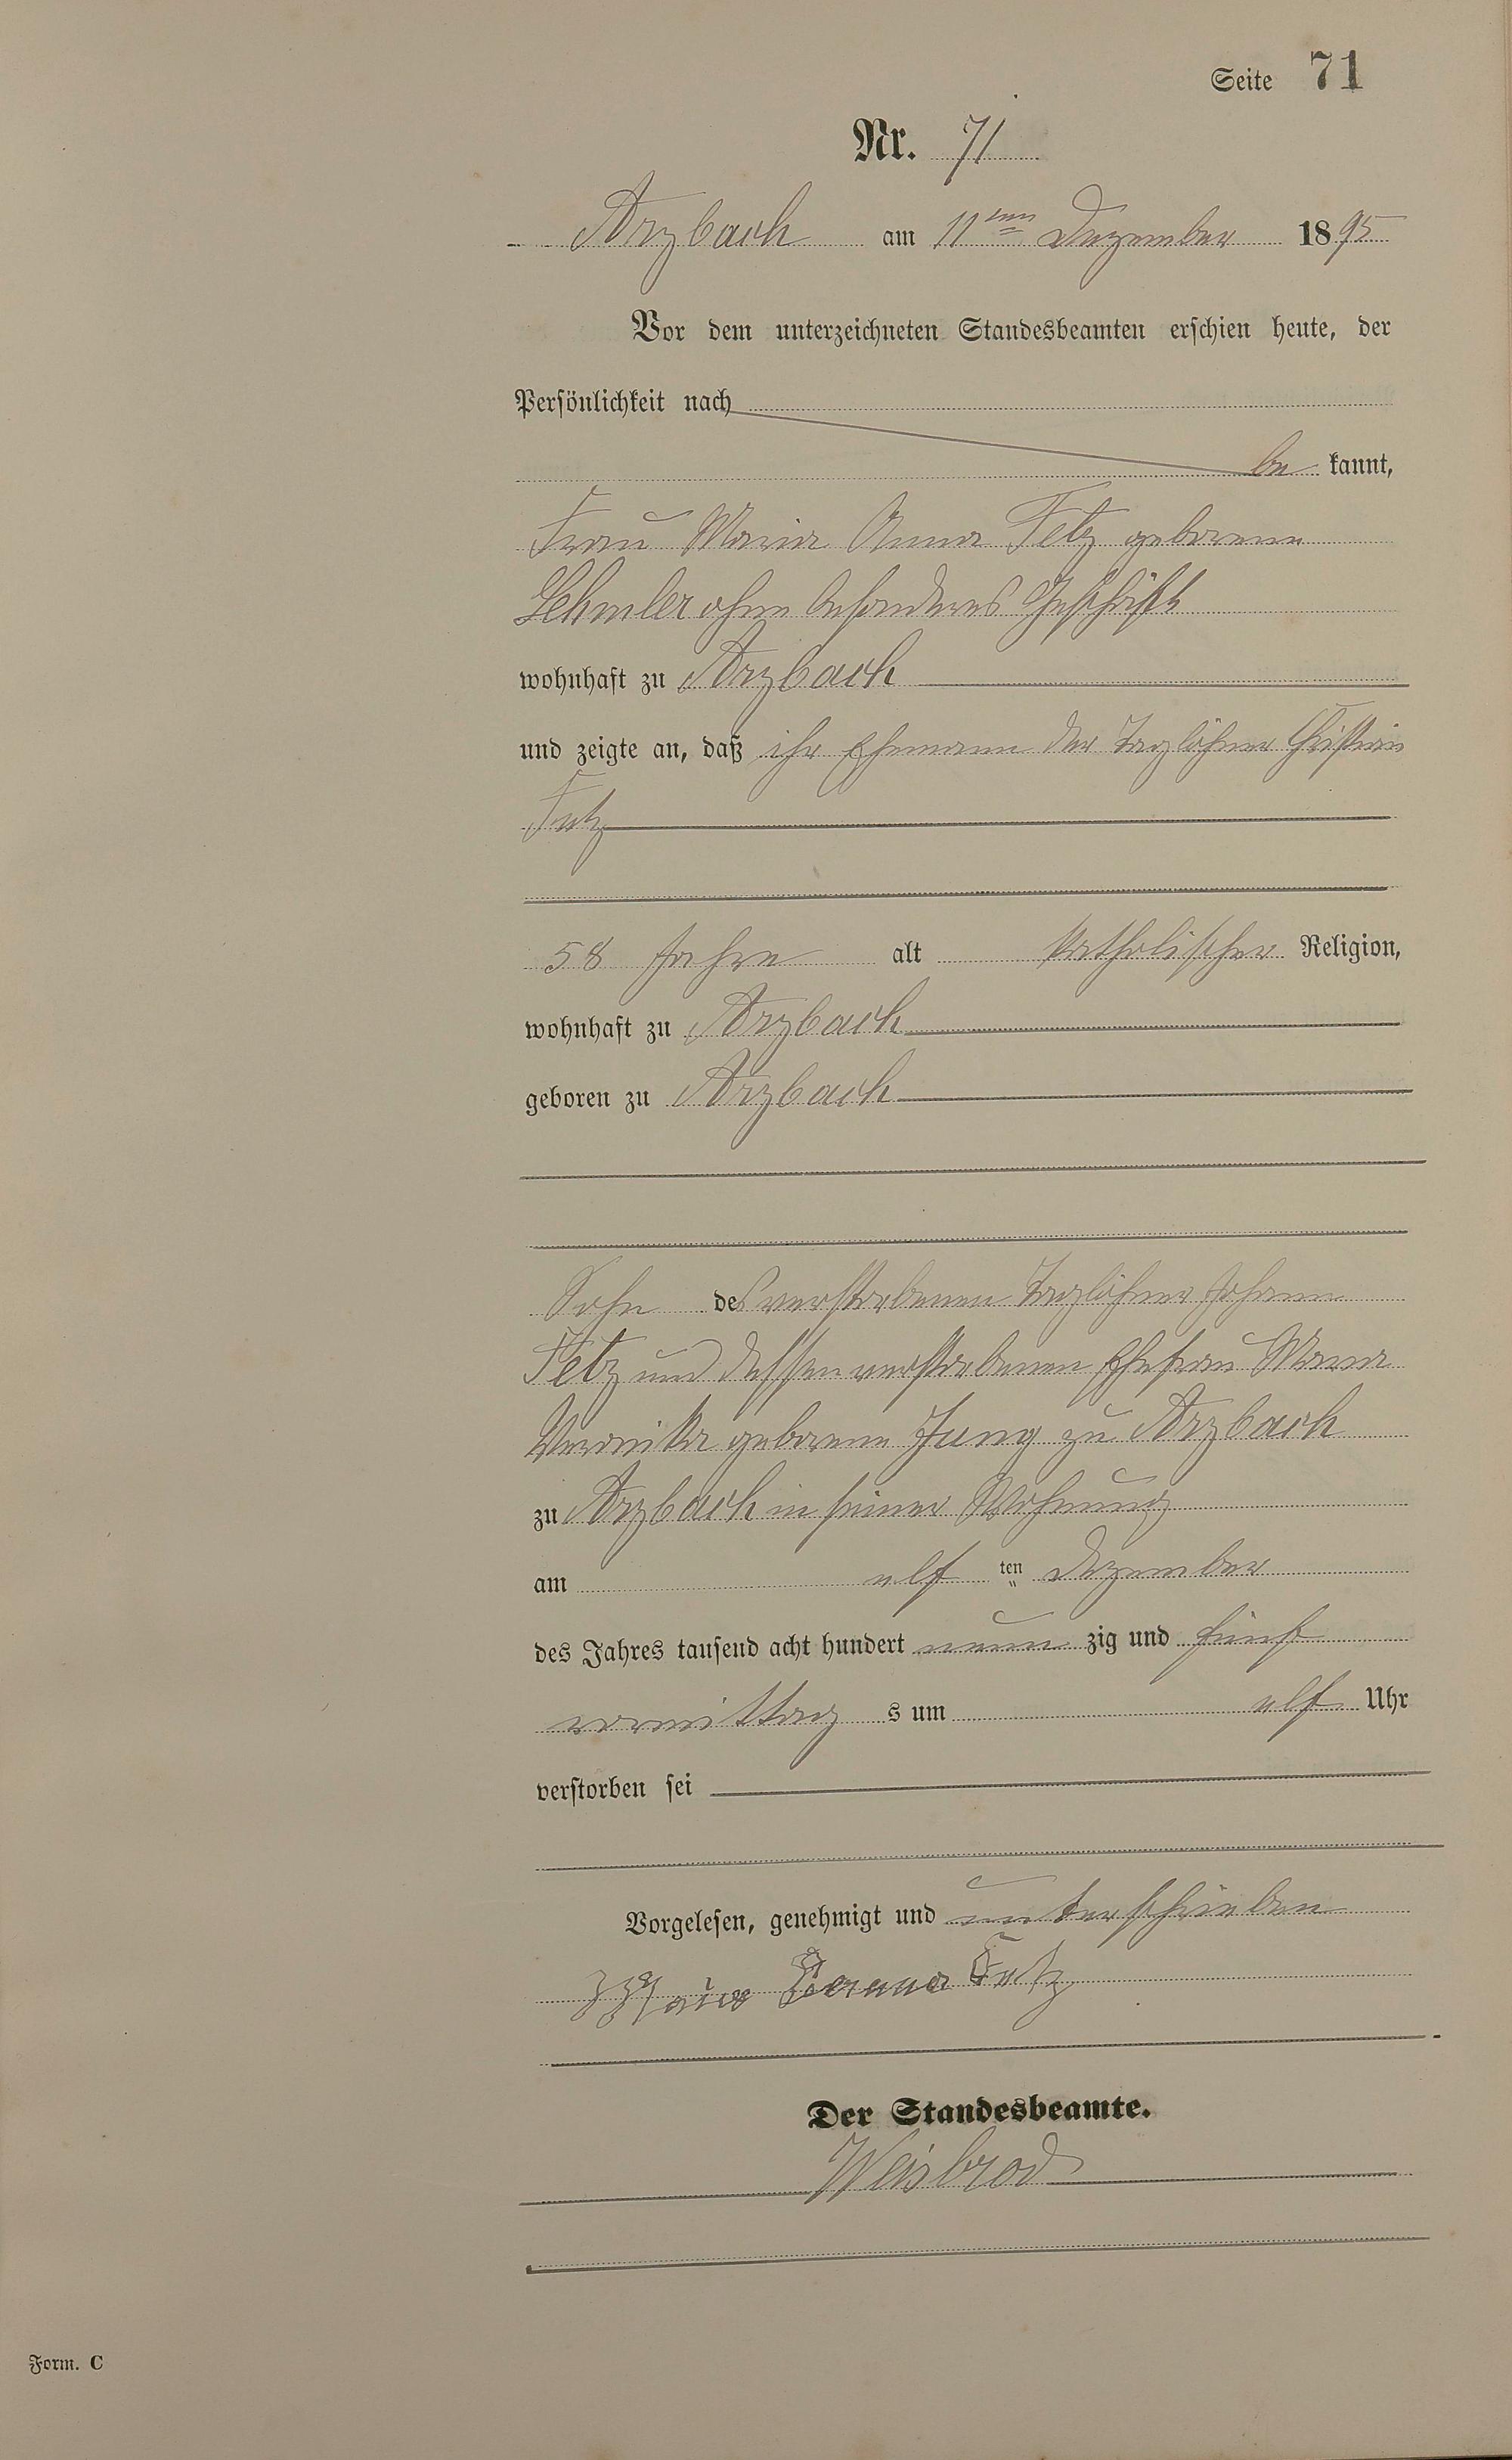 Seite 71
Nr. 71
Arzbach am 11ten Dezember 1895
Vor dem unterzeichneten Standesbeamten erschien heute, der
Persönlichkeit nach
be kannt,
Frau Maria Anna Fetz geborene
Lehmler ohne besonderes Geschäft
wohnhaft zu Arzbach
und zeigte an, daß ihr Ehemann der Taglöhner Christian
Fetz
58 Jahre alt katholischer Religion,
wohnhaft zu Arzbach
geboren zu Arzbach
Sohn des verstorbenen Taglöhner Johann
Fetz und dessen verstorbenen Ehefrau Maria
Veronika geborene Jung zu Arzbach
zu Arzbach in seiner Wohnung
am elf ten Dezember
des Jahres tausend acht hundert neun zig und fünf
vormittag s um elf Uhr
verstorben sei
Vorgelesen, genehmigt und unterschrieben
Maria Anna Fetz
Der Standesbeamte.
Weisbrod
Form. C